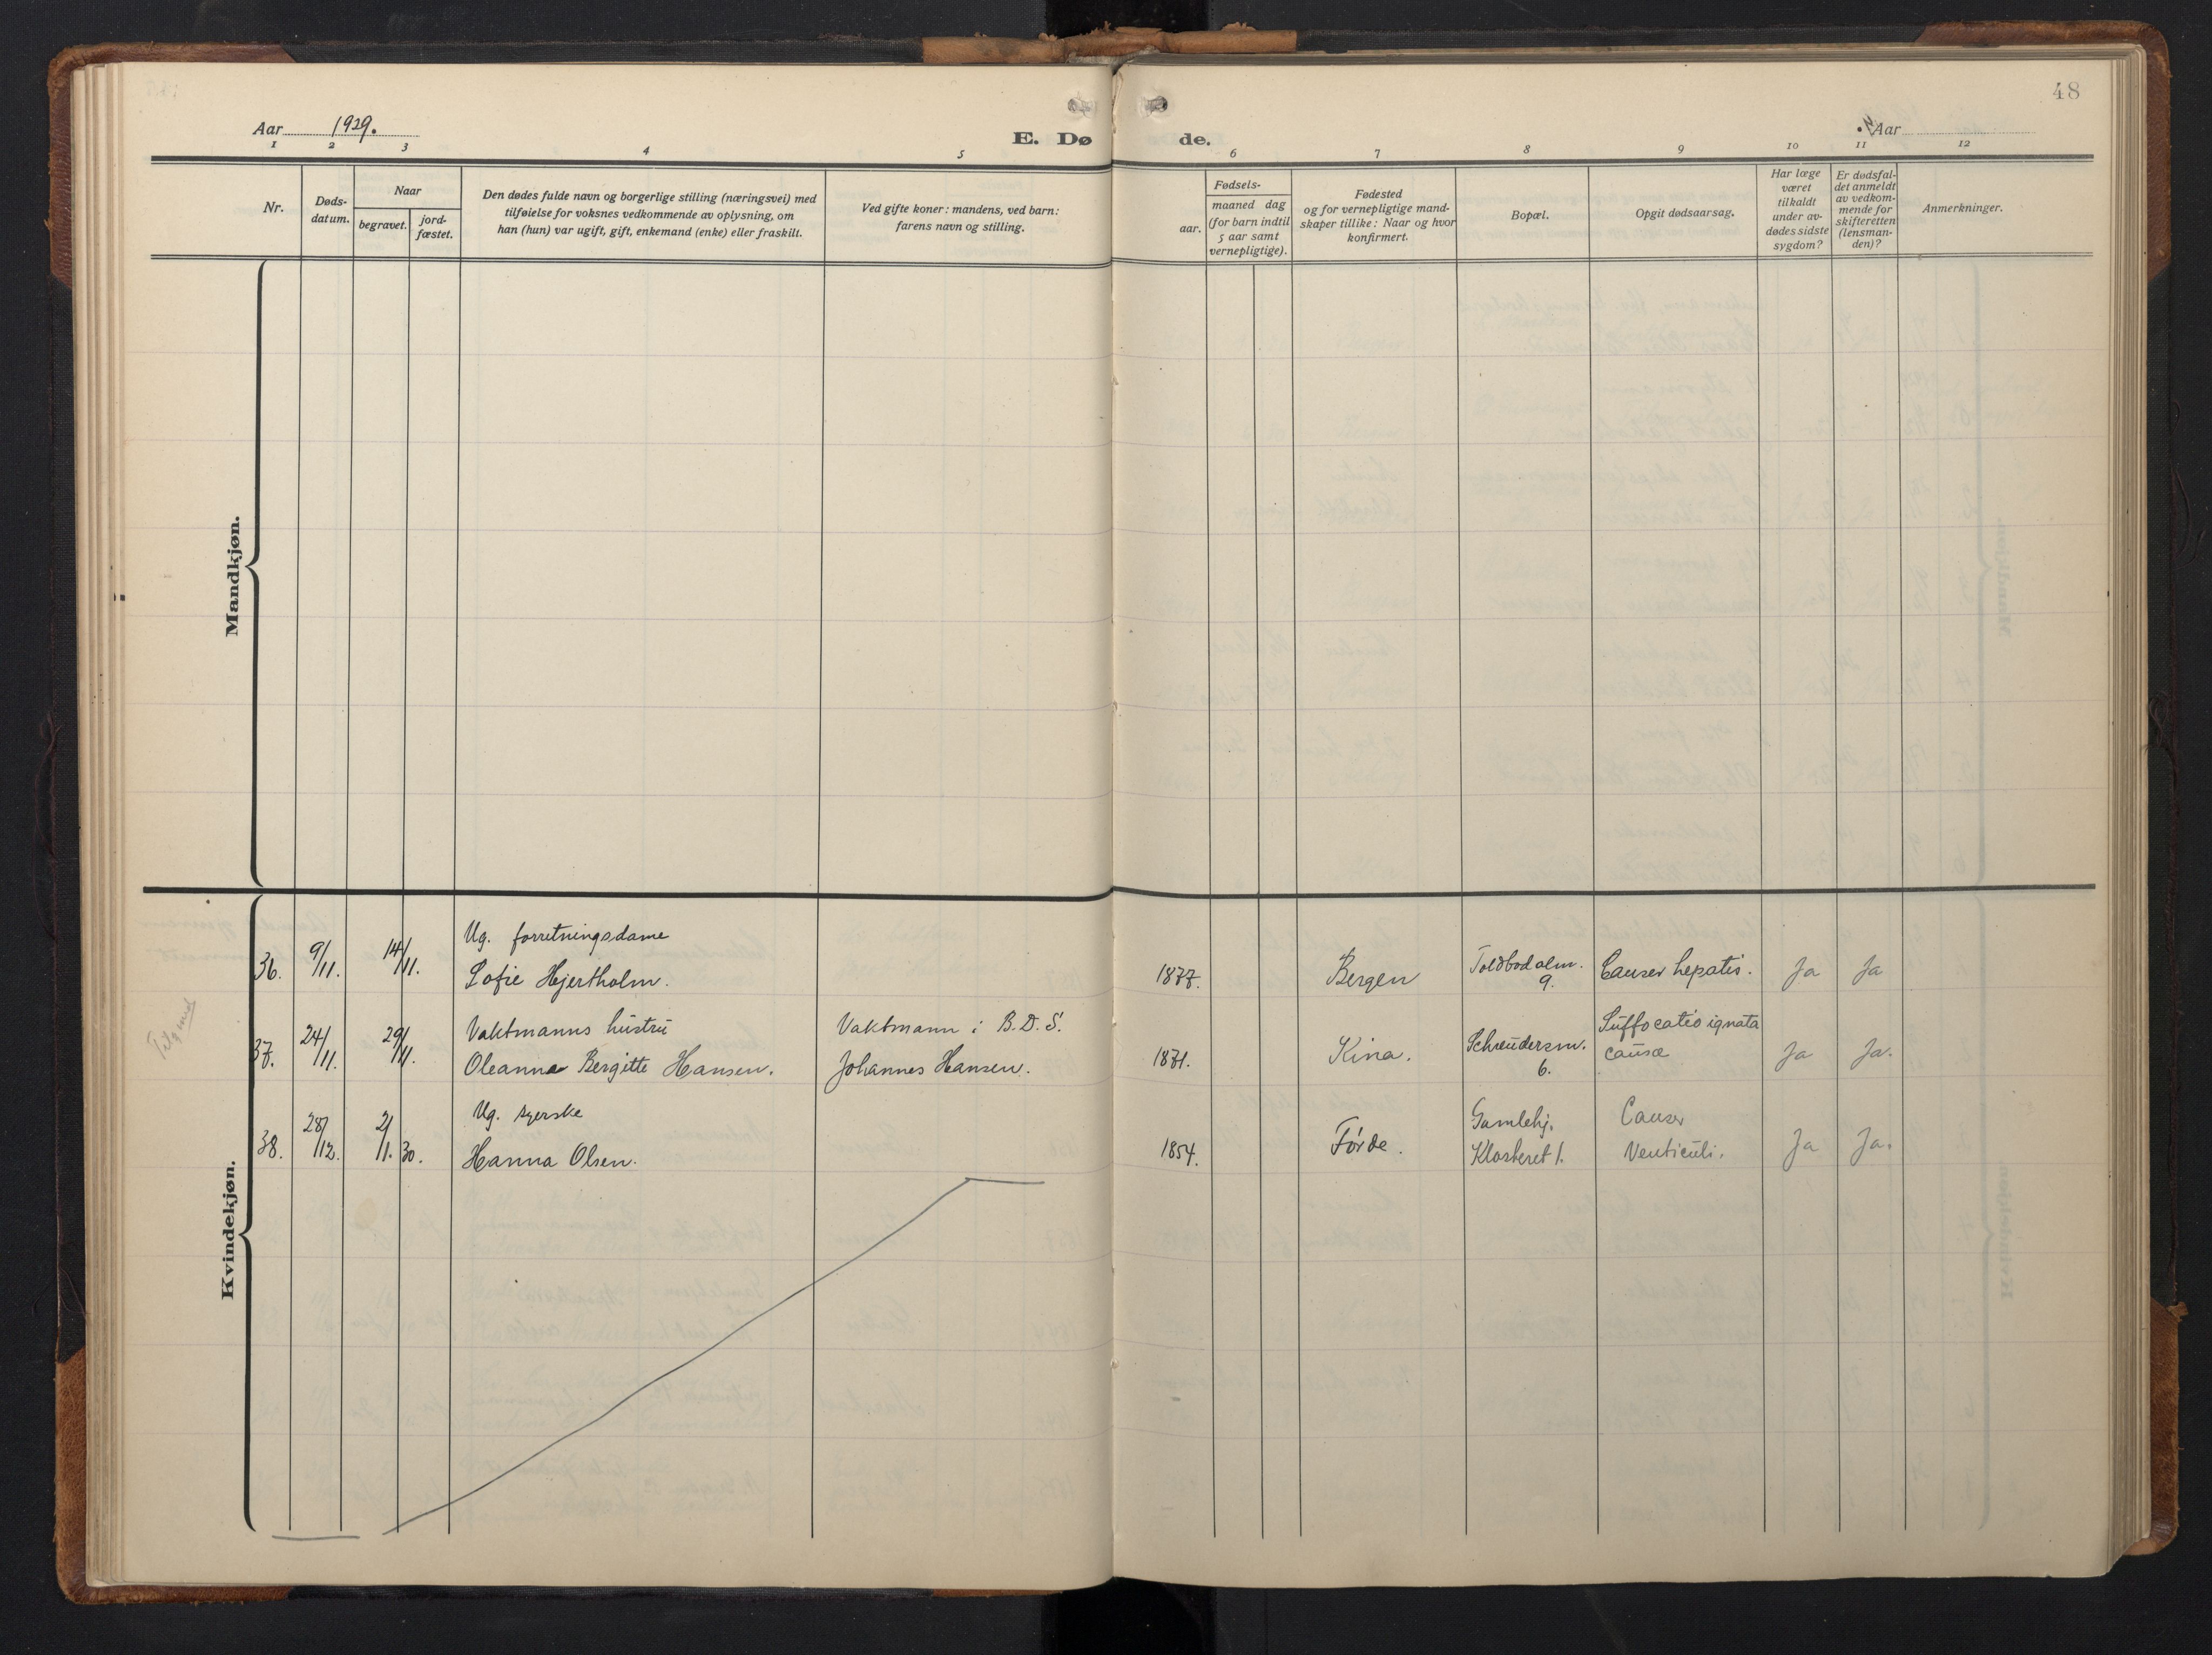 48
Aar 1929.
E. Døde.
Aar
1 2 3 4 5 6 7 8 9 10 11 12
Nr.
Døds-
datum.
Naar
begravet.
jord-
fæstet.
Den dødes fulde navn og borgerlige stilling (næringsvei) med
tilføielse for voksnes vedkommende av oplysning, om
han (hun) var ugift, gift, enkemand (enke) eller fraskilt.
Ved gifte koner: mandens, ved barn:
farens navn og stilling.
aar.
Fødsels-
maaned dag
(for barn indtil
5 aar samt
vernepligtige).
Fødested
og for vernepligtige mand-
skaper tillike: Naar og hvor
konfirmert.
Bopæl.
Opgit dødsaarsag.
Har læge
været
tilkaldt
under av-
dødes sidste
sygdom?
Er dødsfal-
det anmeldt
av vedkom-
mende for
skifteretten
(lensman-
den)?
Anmerkninger.
Mandkjøn.
Kvindekjøn.
36. 9/11. 14/11.
Ug. forretningsdame
Sofie Hjertholm.
1877.
Bergen
Toldbodalm.
9.
Cancer hepatis.
Ja
Ja
37. 24/11. 29/11.
Vaktmanns hustru
Oleanna Bergitte Hansen.
Vaktmann i B.D.S.
Johannes Hansen.
1871.
Kina.
Schreudersm.
6.
Suffocatio ignata
causa
Ja
Ja.
38. 28/12. 2/1. 30.
Ug. syerske
Hanna Olsen.
1854.
Førde.
Gamlehj.
Klosteret 1.
Cancer
Venticuli.
Ja
Ja.